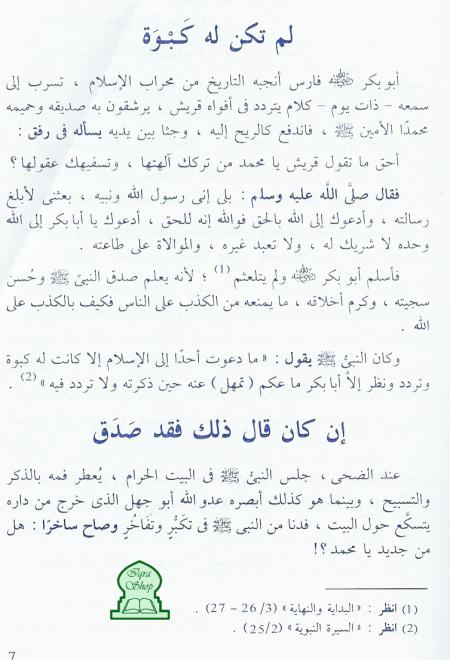 لم تكن له كَبْوَة
أبو بكر ﷺ فارس أنجبه التاريخ من محراب الإسلام ، تسرب إلى
سمعه - ذات يوم - كلام يتردد فى أفواه قريش ، يرشقون به صديقه وحميمه
محمدًا الأمين ﷺ ، فاندفع كالريح إليه ، وجثا بين يديه يسأله فى رفق :
أحق ما تقول قريش يا محمد من تركك آلهتها ، وتسفيهك عقولها ؟
فقال صلَّى اللَّه عليه وسلم : بلى إنى رسول الله ونبيه ، بعثنى لأبلغ
رسالته ، وأدعوك إلى الله بالحق فوالله إنه للحق ، أدعوك يا أبا بكر إلى الله
وحده لا شريك له ، ولا تعبد غيره ، والموالاة على طاعته .
فأسلم أبو بكر ولم يتلعثم (1) ؛ لأنه يعلم صدق النبىّ ﷺ وحُسن
سجيته ، وكرم أخلاقه ، ما يمنعه من الكذب على الناس فكيف بالكذب على
الله .
وكان النبىُّ ﷺ يقول : « ما دعوت أحدًا إلى الإسلام إلا كانت له كبوة
وتردد ونظر إلاَّ أبا بكر ما عكم ( تمهل ) عنه حين ذكرته ولا تردد فيه » (2) .
إن كان قال ذلك فقد صَدَق
عند الضحى ، جلس النبىُّ ﷺ فى البيت الحرام ، يُعطر فمه بالذكر
والتسبيح ، وبينما هو كذلك أبصره عدو الله أبو جهل الذى خرج من داره
يتسكَّع حول البيت ، فدنا من النبى ﷺ فى تكَبُّرٍ وتَفَاخُرٍ وصاح ساخرًا : هل
من جديد يا محمد ؟!
(1) انظر : « البداية والنهاية » (3/ 26 - 27) .
(2) انظر : « السيرة النبوية » (25/2) .
Iqra
Shop
7